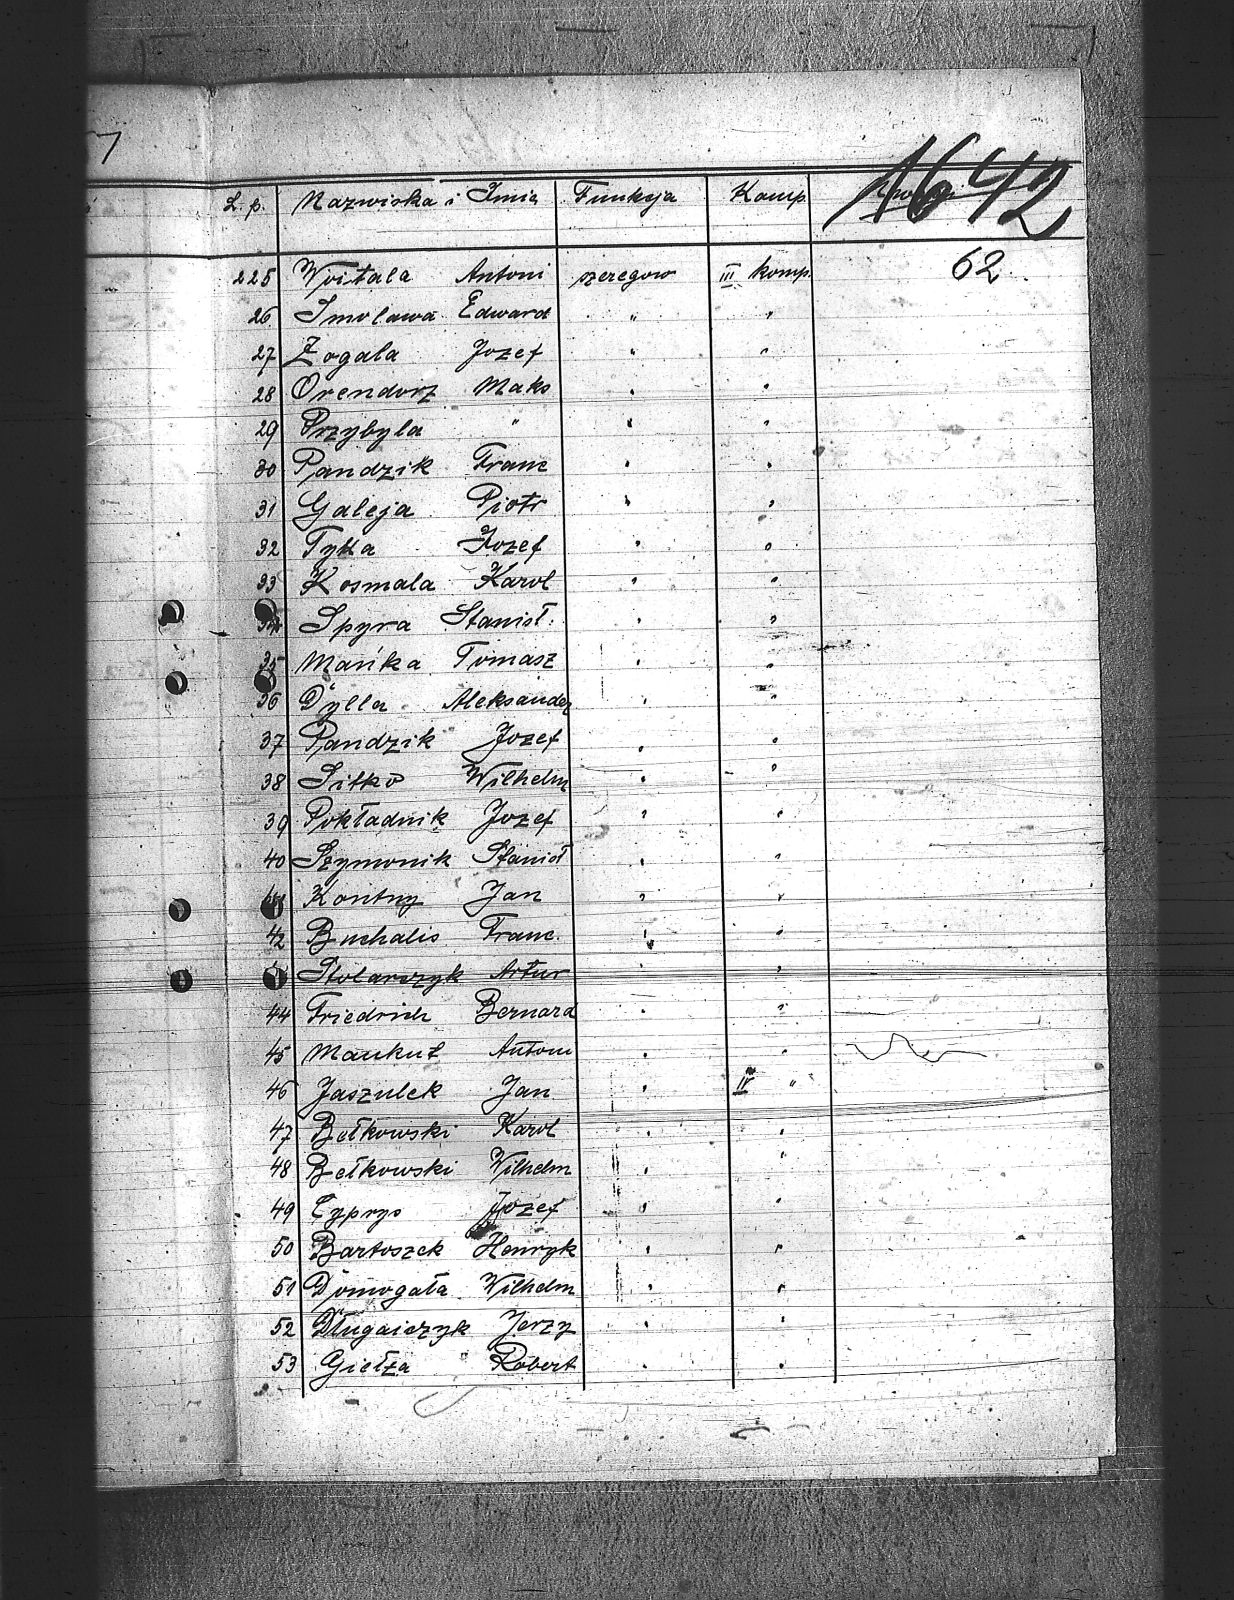 7
1642
L. p. Nazwiska i Imię Funkcja Komp.
62
225 Woitala Antoni szeregow III komp.
26 Smolawa Edward " "
27 Zogala Jozef " "
28 Orendorz Maks " "
29 Przybyla " " "
30 Pandzik Franc " "
31 Galeja Piotr " "
32 Tyka Jozef " "
33 Kosmala Karol " "
34 Spyra Stanisł. " "
35 Mańka Tomasz " "
36 Dylla Aleksander " "
37 Pandzik Jozef " "
38 Sitko Wilhelm " "
39 Pokładnik Jozef " "
40 Szymonik Stanisł " "
41 Kontny Jan " "
42 Buchalis Franc. " "
Stolarczyk Artur " "
44 Friedrich Bernard " "
45 Mankut Antoni " "
46 Jaszulek Jan " IV "
47 Bełkowski Karol " "
48 Bełkowski Wilhelm " "
49 Cyprys Jozef " "
50 Bartoszek Henryk " "
51 Domogała Wilhelm " "
52 Długaiczyk Jerzy " "
53 Giełza Robert " "